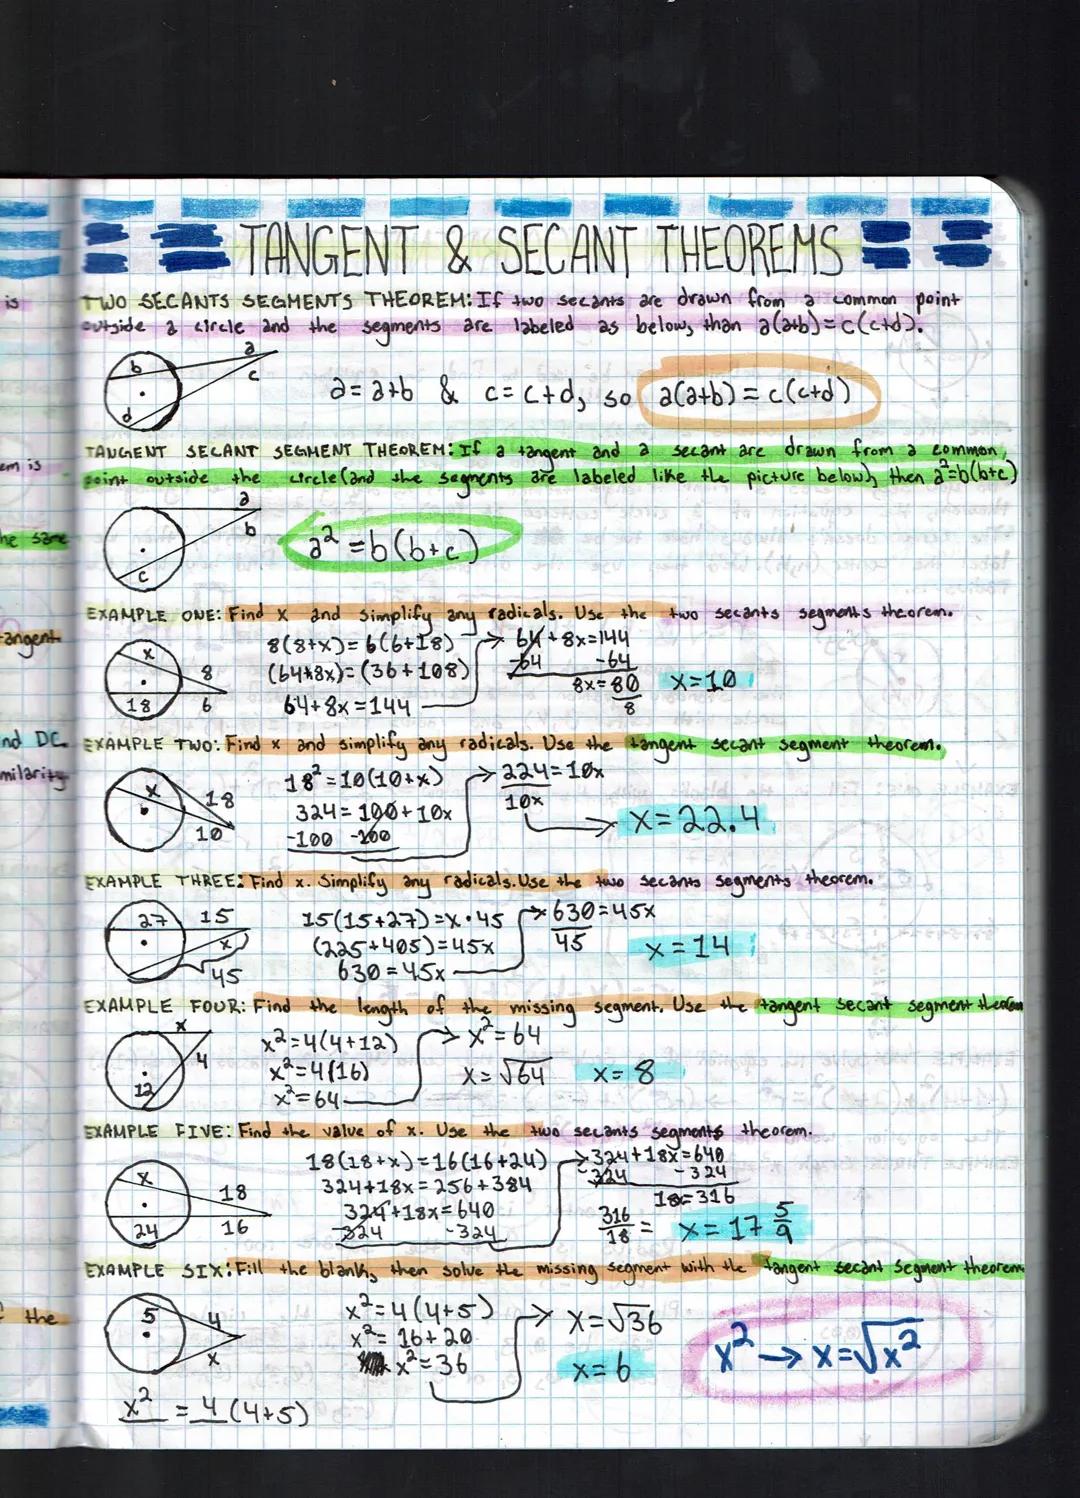 TANGENT & SECANT THEOREMS
TWO SECANTS SEGMENTS THEOREM: If two secants are drawn from a common point
outside a circle and the segments are labeled as below, than a(a+b)=c(c+d).
a
b
c
d
a=a+b & c=c+d, so a(a+b)=c(c+d)
TANGENT SECANT SEGMENT THEOREM: If a tangent and a secant are drawn from a common
point outside the circle (and the segments are labeled like the picture below), then a²=b(b+c)
a
b
c
a²=b(b+c)
EXAMPLE ONE: Find x and simplify any radicals. Use the two secants segments theorem.
x
8
18 6
8(8+x)=6(6+18)
(64+8x)=(36+108)
64+8x=144
64+8x=144
-64 -64
8x=80
8
x=10
EXAMPLE TWO: Find x and simplify any radicals. Use the tangent secant segment theorem.
x
18
10
18²=10(10+x)
324=100+10x
-100 -100
224=10x
10x
x=22.4
EXAMPLE THREE: Find x. Simplify any radicals. Use the two secants segments theorem.
27 15
x
45
15(15+27)=x·45
(225+405)=45x
630=45x
630=45x
45
x=14
EXAMPLE FOUR: Find the length of the missing segment. Use the tangent secant segment theorem
x
4
12
x²=4(4+12)
x²=4(16)
x²=64
x²=64
x=√64 x=8
EXAMPLE FIVE: Find the value of x. Use the two secants segments theorem.
x
18
24 16
18(18+x)=16(16+24)
324+18x=256+384
324+18x=640
-324 -324
324+18x=640
-324 -324
18=316
316
18 = x=17 5/9
EXAMPLE SIX: Fill the blank, then solve the missing segment with the tangent secant segment theorem
5 4
x
x²=4(4+5)
x²=16+20
x²=36
x=√36
x=6
x²→x=√x²
x²=4(4+5)
is
em is
he same
tangent
nd DC.
milarity
f the